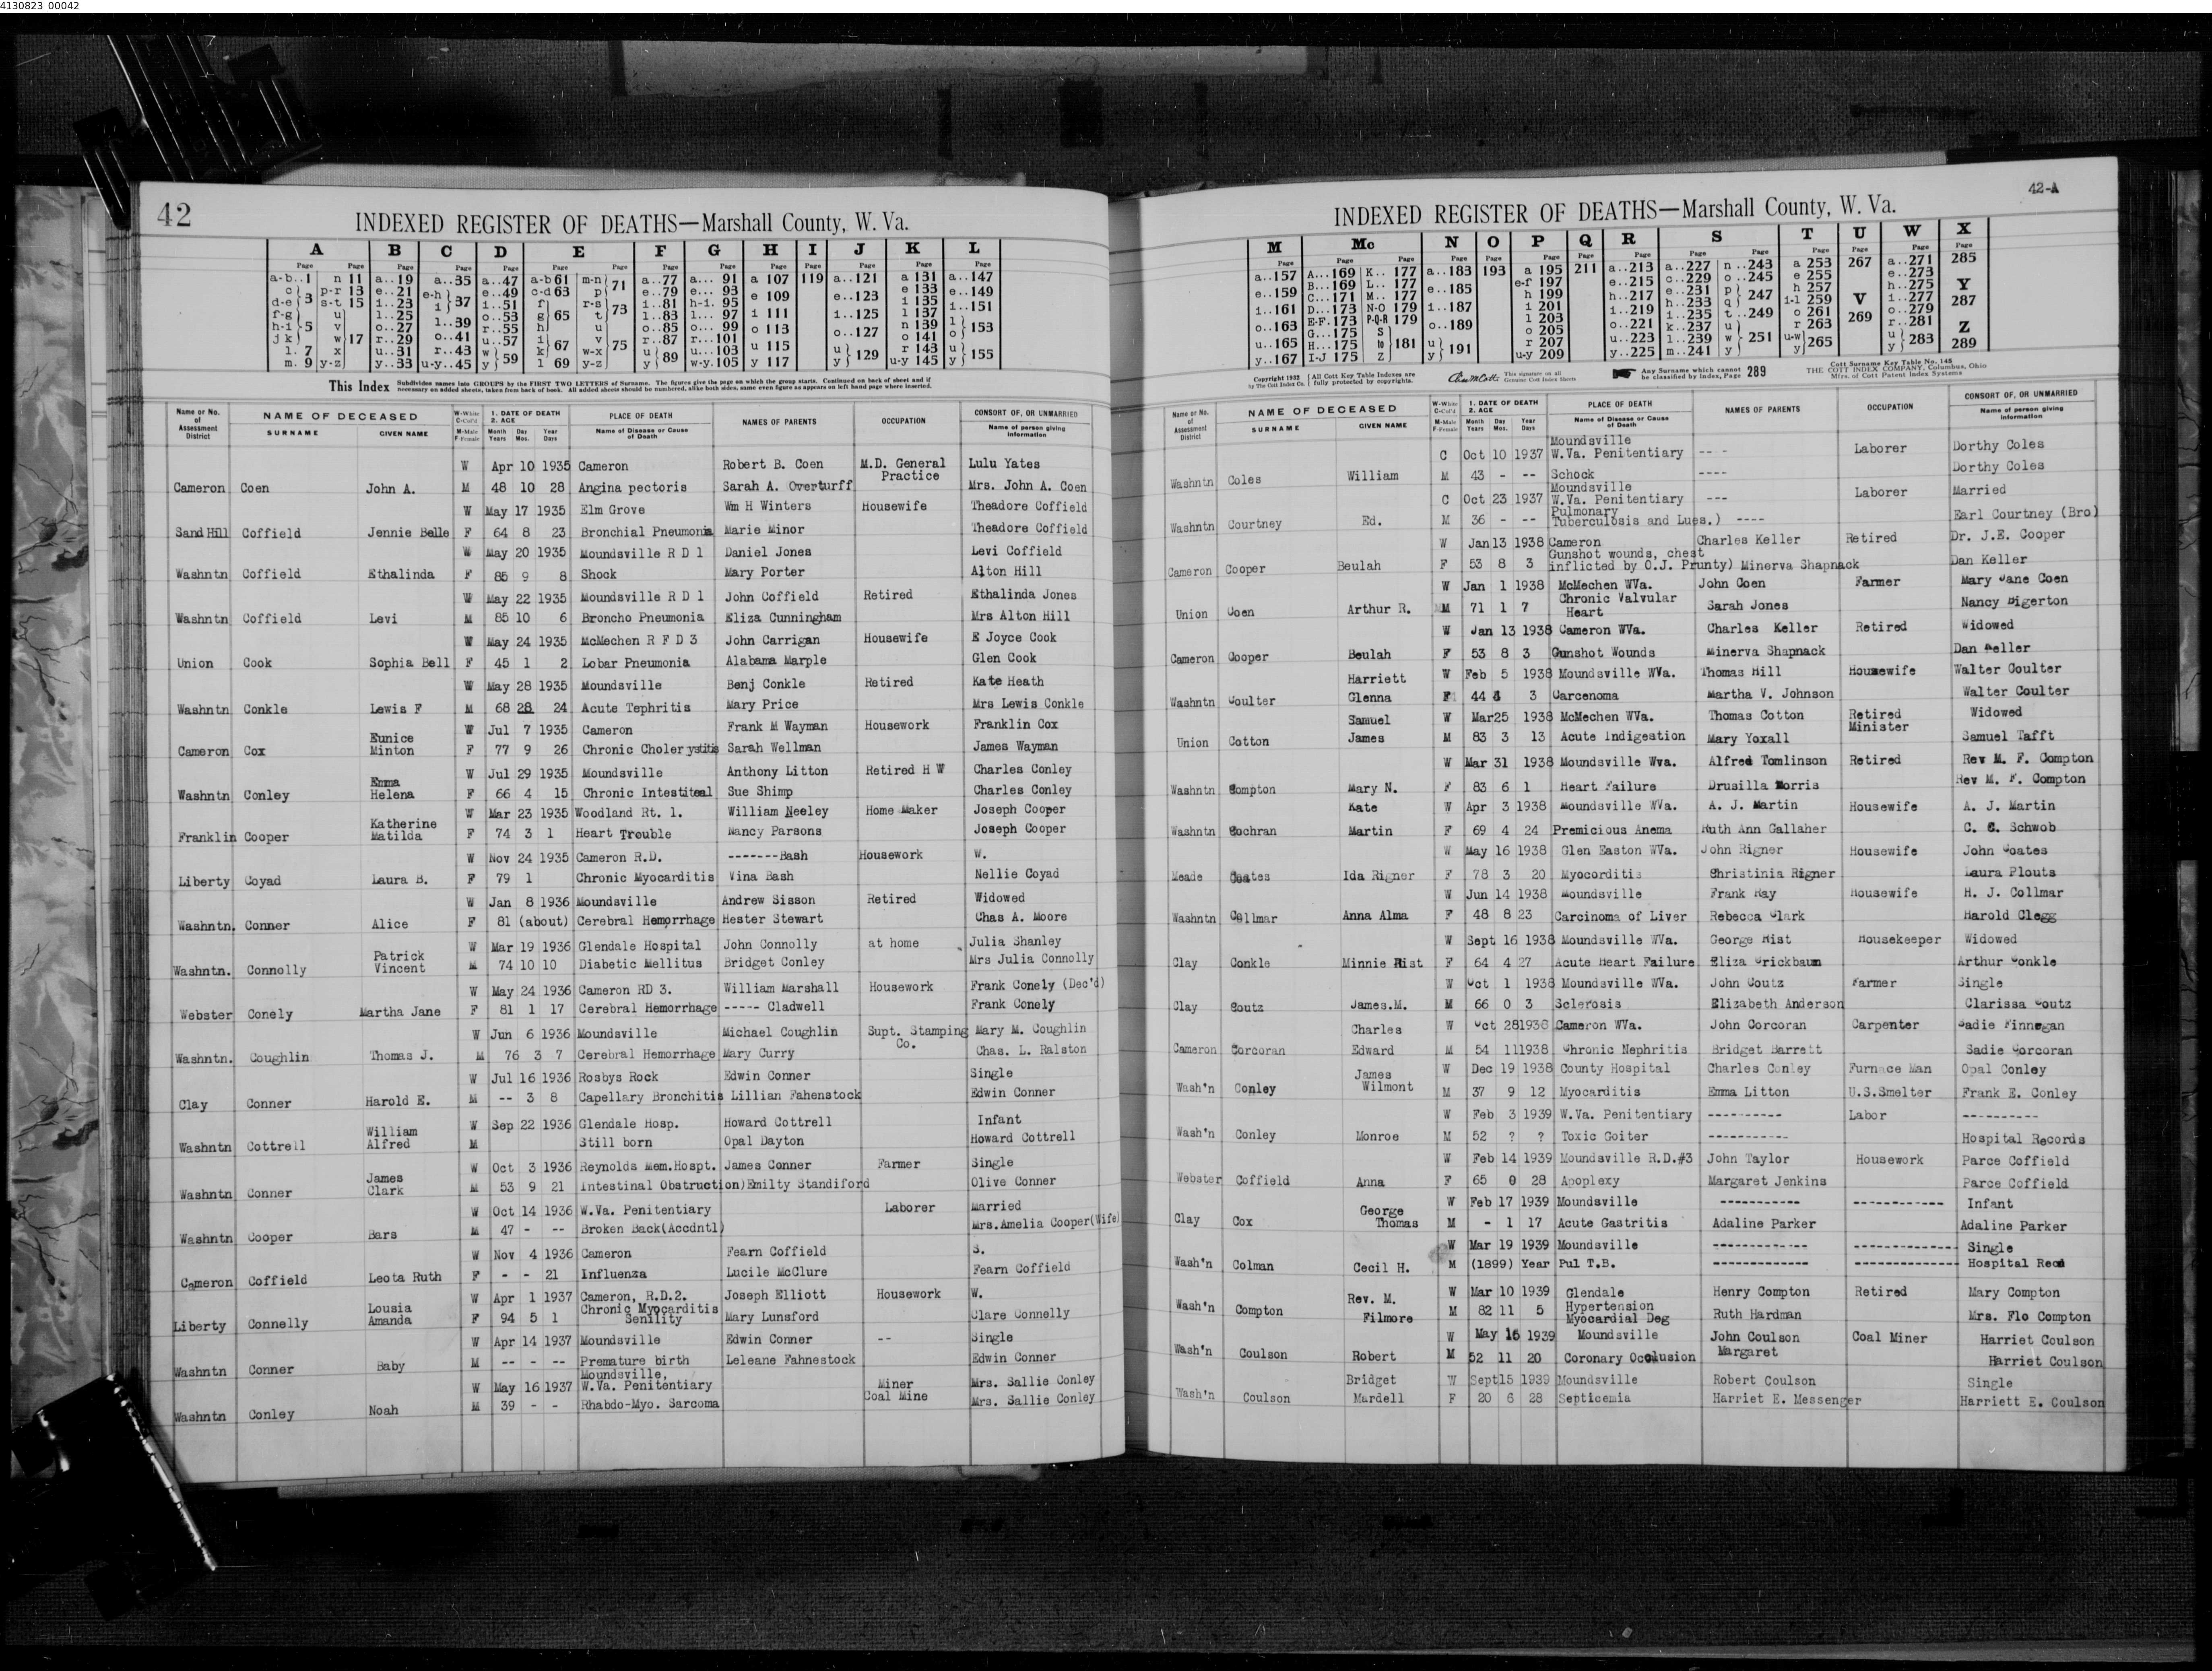 4130823_00042
42
INDEXED REGISTER OF DEATHS—Marshall County, W. Va.
A B C D E F G H I J K L
This Index Subdivides names into GROUPS by the FIRST TWO LETTERS of Surname. The figures give the page on which the group starts. Continued on back of sheet and if
necessary on added sheets, taken from back of book. All added sheets should be numbered, alike both sides, same even figure as appears on left hand page where inserted.
Name or No. of Assessment District NAME OF DECEASED SURNAME GIVEN NAME W-White C-Col'd M-Male F-Female 1. DATE OF DEATH 2. AGE Month Years Day Mos. Year Days PLACE OF DEATH Name of Disease or Cause of Death NAMES OF PARENTS OCCUPATION CONSORT OF, OR UNMARRIED Name of person giving information
W Apr 10 1935 Cameron Robert B. Coen M.D. General Practice Lulu Yates
Cameron Coen John A. M 48 10 28 Angina pectoris Sarah A. Overturff Mrs. John A. Coen
W May 17 1935 Elm Grove Wm H Winters Housewife Theadore Coffield
Sand Hill Coffield Jennie Belle F 64 8 23 Bronchial Pneumonia Marie Minor Theadore Coffield
W May 20 1935 Moundsville R D 1 Daniel Jones Levi Coffield
Washntn Coffield Ethalinda F 85 9 8 Shock Mary Porter Alton Hill
W May 22 1935 Moundsville R D 1 John Coffield Retired Ethalinda Jones
Washntn Coffield Levi M 85 10 6 Broncho Pneumonia Eliza Cunningham Mrs Alton Hill
W May 24 1935 McMechen R F D 3 John Carrigan Housewife E Joyce Cook
Union Cook Sophia Bell F 45 1 2 Lobar Pneumonia Alabama Marple Glen Cook
W May 28 1935 Moundsville Benj Conkle Retired Kate Heath
Washntn Conkle Lewis F M 68 28 24 Acute Tephritis Mary Price Mrs Lewis Conkle
W Jul 7 1935 Cameron Frank M Wayman Housework Franklin Cox
Cameron Cox Eunice Minton F 77 9 26 Chronic Cholerystitis Sarah Wellman James Wayman
W Jul 29 1935 Moundsville Anthony Litton Retired H W Charles Conley
Washntn Conley Emma Helena F 66 4 15 Chronic Intestiteal Sue Shimp Charles Conley
W Mar 23 1935 Woodland Rt. 1. William Neeley Home Maker Joseph Cooper
Franklin Cooper Katherine Matilda F 74 3 1 Heart Trouble Nancy Parsons Joseph Cooper
W Nov 24 1935 Cameron R.D. -------Bash Housework W.
Liberty Coyad Laura B. F 79 1 Chronic Myocarditis Vina Bash Nellie Coyad
W Jan 8 1936 Moundsville Andrew Sisson Retired Widowed
Washntn. Conner Alice F 81 (about) Cerebral Hemorrhage Hester Stewart Chas A. Moore
W Mar 19 1936 Glendale Hospital John Connolly at home Julia Shanley
Washntn. Connolly Patrick Vincent M 74 10 10 Diabetic Mellitus Bridget Conley Mrs Julia Connolly
W May 24 1936 Cameron RD 3. William Marshall Housework Frank Conely (Dec'd)
Webster Conely Martha Jane F 81 1 17 Cerebral Hemorrhage ----- Cladwell Frank Conely
W Jun 6 1936 Moundsville Michael Coughlin Supt. Stamping Co. Mary M. Coughlin
Washntn. Coughlin Thomas J. M 76 3 7 Cerebral Hemorrhage Mary Curry Chas. L. Ralston
W Jul 16 1936 Rosbys Rock Edwin Conner Single
Clay Conner Harold E. M -- 3 8 Capellary Bronchitis Lillian Fahenstock Edwin Conner
W Sep 22 1936 Glendale Hosp. Howard Cottrell Infant
Washntn Cottrell William Alfred M Still born Opal Dayton Howard Cottrell
W Oct 3 1936 Reynolds Mem.Hospt. James Conner Farmer Single
Washntn Conner James Clark M 53 9 21 Intestinal Obstruction) Emilty Standiford Olive Conner
W Oct 14 1936 W.Va. Penitentiary Laborer Married
Washntn Cooper Bars M 47 - -- Broken Back(Accdntl) Mrs.Amelia Cooper(Wife)
W Nov 4 1936 Cameron Fearn Coffield S.
Cameron Coffield Leota Ruth F - - 21 Influenza Lucile McClure Fearn Coffield
W Apr 1 1937 Cameron, R.D.2. Joseph Elliott Housework W.
Liberty Connelly Lousia Amanda F 94 5 1 Chronic Myocarditis Senility Mary Lunsford Clare Connelly
W Apr 14 1937 Moundsville Edwin Conner -- Single
Washntn Conner Baby M -- - -- Premature birth Leleane Fahnestock Edwin Conner
W May 16 1937 Moundsville, W.Va. Penitentiary Miner Coal Mine Mrs. Sallie Conley
Washntn Conley Noah M 39 - - Rhabdo-Myo. Sarcoma Mrs. Sallie Conley
42-A
INDEXED REGISTER OF DEATHS—Marshall County, W. Va.
M Mc N O P Q R S T U W X
Copyright 1932 by The Cott Index Co. All Cott Key Table Indexes are fully protected by copyrights. This signature on all Genuine Cott Index Sheets Any Surname which cannot be classified by Index, Page 289 Cott Surname Key Table No. 145
THE COTT INDEX COMPANY, Columbus, Ohio
Mfrs. of Cott Patent Index Systems
Name or No. of Assessment District NAME OF DECEASED SURNAME GIVEN NAME W-White C-Col'd M-Male F-Female 1. DATE OF DEATH 2. AGE Month Years Day Mos. Year Days PLACE OF DEATH Name of Disease or Cause of Death NAMES OF PARENTS OCCUPATION CONSORT OF, OR UNMARRIED Name of person giving information
C Oct 10 1937 Moundsville W.Va. Penitentiary ---- Laborer Dorthy Coles
Washntn Coles William M 43 - -- Schock ---- Dorthy Coles
C Oct 23 1937 Moundsville W.Va. Penitentiary --- Laborer Married
Washntn Courtney Ed. M 36 - -- Pulmonary Tuberculosis and Lues.) ---- Earl Courtney (Bro)
W Jan 13 1938 Cameron Charles Keller Retired Dr. J.E. Cooper
Cameron Cooper Beulah F 53 8 3 Gunshot wounds, chest inflicted by O.J. Prunty) Minerva Shapnack Dan Keller
W Jan 1 1938 McMechen WVa. John Coen Farmer Mary Jane Coen
Union Coen Arthur R. M 71 1 7 Chronic Valvular Heart Sarah Jones Nancy Digerton
W Jan 13 1938 Cameron WVa. Charles Keller Retired Widowed
Cameron Cooper Beulah F 53 8 3 Gunshot Wounds Minerva Shapnack Dan Keller
W Feb 5 1938 Moundsville WVa. Thomas Hill Housewife Walter Coulter
Washntn Coulter Harriett Glenna F 44 4 3 Carcenoma Martha V. Johnson Walter Coulter
W Mar25 1938 McMechen WVa. Thomas Cotton Retired Minister Widowed
Union Cotton Samuel James M 83 3 13 Acute Indigestion Mary Yoxall Samuel Tafft
W Mar 31 1938 Moundsville Wva. Alfred Tomlinson Retired Rev M. F. Compton
Washntn Compton Mary N. F 83 6 1 Heart Failure Drusilla Morris Rev M. F. Compton
W Apr 3 1938 Moundsville WVa. A. J. Martin Housewife A. J. Martin
Washntn Cochran Kate Martin F 69 4 24 Premicious Anema Ruth Ann Gallaher C. C. Schwob
W May 16 1938 Glen Easton WVa. John Rigner Housewife John Coates
Meade Coates Ida Rigner F 78 3 20 Myocorditis Christinia Rigner Laura Plouts
W Jun 14 1938 Moundsville Frank Ray Housewife H. J. Collmar
Washntn Collmar Anna Alma F 48 8 23 Carcinoma of Liver Rebecca Clark Harold Clegg
W Sept 16 1938 Moundsville WVa. George Rist Housekeeper Widowed
Clay Conkle Minnie Rist F 64 4 27 Acute Heart Failure Eliza Crickbaum Arthur Conkle
W Oct 1 1938 Moundsville WVa. John Coutz Farmer Single
Clay Coutz James.M. M 66 0 3 Sclerosis Elizabeth Anderson Clarissa Coutz
W Oct 28 1938 Cameron WVa. John Corcoran Carpenter Sadie Finnegan
Cameron Corcoran Charles Edward M 54 111938 Chronic Nephritis Bridget Barrett Sadie Corcoran
W Dec 19 1938 County Hospital Charles Conley Furnace Man Opal Conley
Wash'n Conley James Wilmont M 37 9 12 Myocarditis Emma Litton U.S.Smelter Frank E. Conley
W Feb 3 1939 W.Va. Penitentiary ---------- Labor ----------
Wash'n Conley Monroe M 52 ? ? Toxic Goiter ---------- Hospital Records
W Feb 14 1939 Moundsville R.D.#3 John Taylor Housework Parce Coffield
Webster Coffield Anna F 65 0 28 Apoplexy Margaret Jenkins Parce Coffield
W Feb 17 1939 Moundsville ----------- ------------ Infant
Clay Cox George Thomas M - 1 17 Acute Gastritis Adaline Parker Adaline Parker
W Mar 19 1939 Moundsville ------------ ------------- Single
Wash'n Colman Cecil H. M (1899) Year Pul T.B. ------------ ------------- Hospital Recd
W Mar 10 1939 Glendale Henry Compton Retired Mary Compton
Wash'n Compton Rev. M. Filmore M 82 11 5 Hypertension Myocardial Deg Ruth Hardman Mrs. Flo Compton
W May 15 1939 Moundsville John Coulson Coal Miner Harriet Coulson
Wash'n Coulson Robert M 52 11 20 Coronary Occlusion Margaret Harriet Coulson
W Sept15 1939 Moundsville Robert Coulson Single
Wash'n Coulson Bridget Mardell F 20 6 28 Septicemia Harriet E. Messenger Harriett E. Coulson